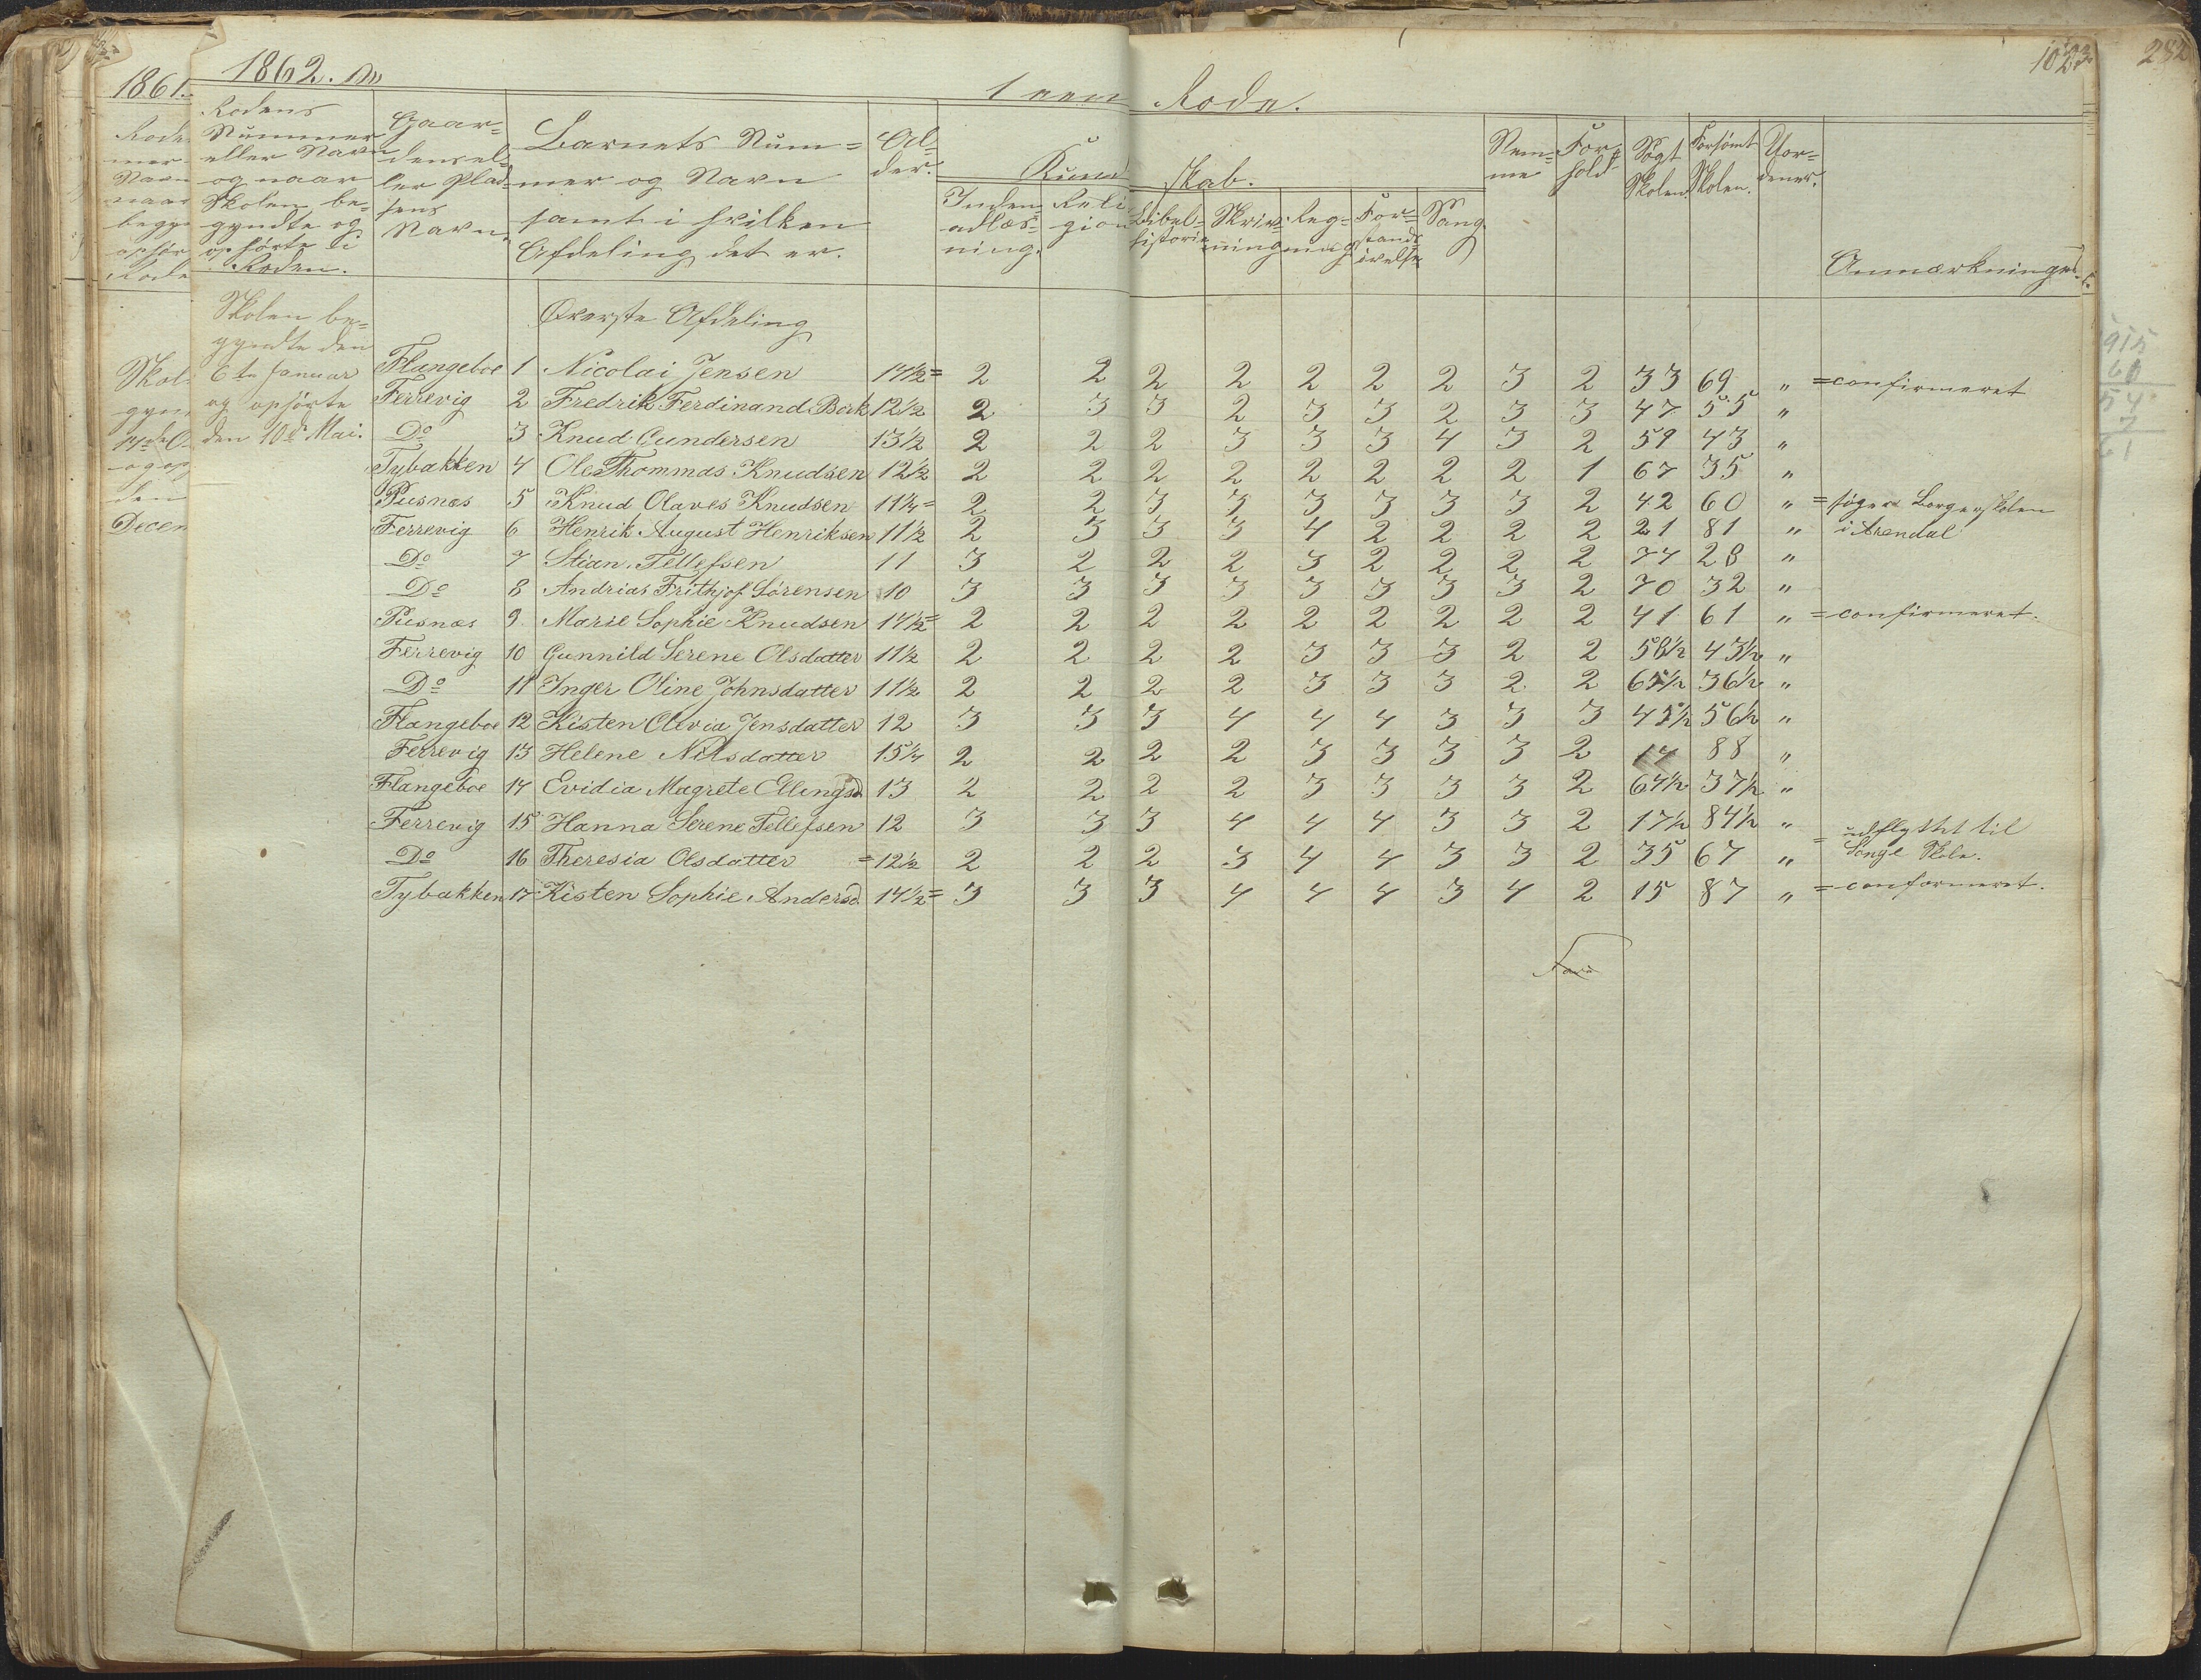 1862.
1023
282
1861.
1een Rode.
Rodens
Nummer
eller Navn
og naar
Skolen be=
gyndte og
ophørte i
Roden.
Gaar=
dens el=
ler Plad=
sens
Navn
Barnets Num=
mer og Navn
samt i hvilken
Afdeling det er.
Al=
der.
Kund skab.
Inden=
adlæs=
ning.
Reli
gion
Bibel=
historie
Skriv=
ning
Reg=
ning
For=
stands
øvelse
Sang
Nem=
me
For=
hold
Søgt
Skolen
Forsømt
Skolen.
Anmærkninger.
Skolen be=
gyndte den
6te Januar
og ophørte
den 10de Mai.
Øverste Afdeling
Flangeboe 1 Nicolai Jensen 14½= 2 2 2 2 2 2 2 3 2 33 69 " =confirmeret
Ferrevig 2 Fredrik Ferdinand Bork 12½ 2 3 3 2 3 3 2 3 3 47 55 "
Do 3 Knud Gundersen 13½ 2 2 2 3 3 3 4 3 2 59 43 "
Tybakken 4 Ole Thommas Knudsen 12½ 2 2 2 2 2 2 2 2 1 67 35 "
Pusnæs 5 Knud Olaves Knudsen 11¼= 2 2 3 3 3 3 3 3 2 42 60 " =søger Borgerskolen
i Arendal
Ferrevig 6 Henrik August Henriksen 11½ 2 3 3 3 4 2 2 2 2 21 81 "
Do 7 Stian Tellefsen 11 3 2 2 2 3 2 2 2 2 74 28 "
Do 8 Andrias Frithjof Sørensen 10 3 3 3 3 3 3 3 3 2 70 32 "
Pusnæs 9 Marie Sophie Knudsen 14½= 2 2 2 2 2 2 2 2 2 41 61 " =confirmeret.
Ferrevig 10 Gunnild Serene Olsdatter 11½ 2 2 2 2 3 3 3 2 2 58½ 43½ "
Do 11 Inger Oline Johnsdatter 11½ 2 2 2 2 3 3 3 2 2 65½ 36½ "
Flangeboe 12 Kisten Olevia Jensdatter 12 3 3 3 4 4 4 3 3 3 45½ 56½ "
Ferrevig 13 Helene Nilsdatter 15¼ 2 2 2 2 3 3 3 3 2 14 88 "
Flangeboe 14 Evidia Magrete Ellingsd 13 2 2 2 2 3 3 3 3 2 64½ 37½ "
Ferrevig 15 Hanna Serene Tellefsen 12 3 3 3 4 4 4 3 3 2 17½ 84½ "
Do 16 Theresia Olsdatter =12½ 2 2 2 3 4 4 3 3 2 35 67 " = udflyttet til
Songe Skole.
Tybakken 17 Kisten Sophie Andersd. 14½= 3 3 3 4 4 4 3 4 2 15 87 " =conformeret.